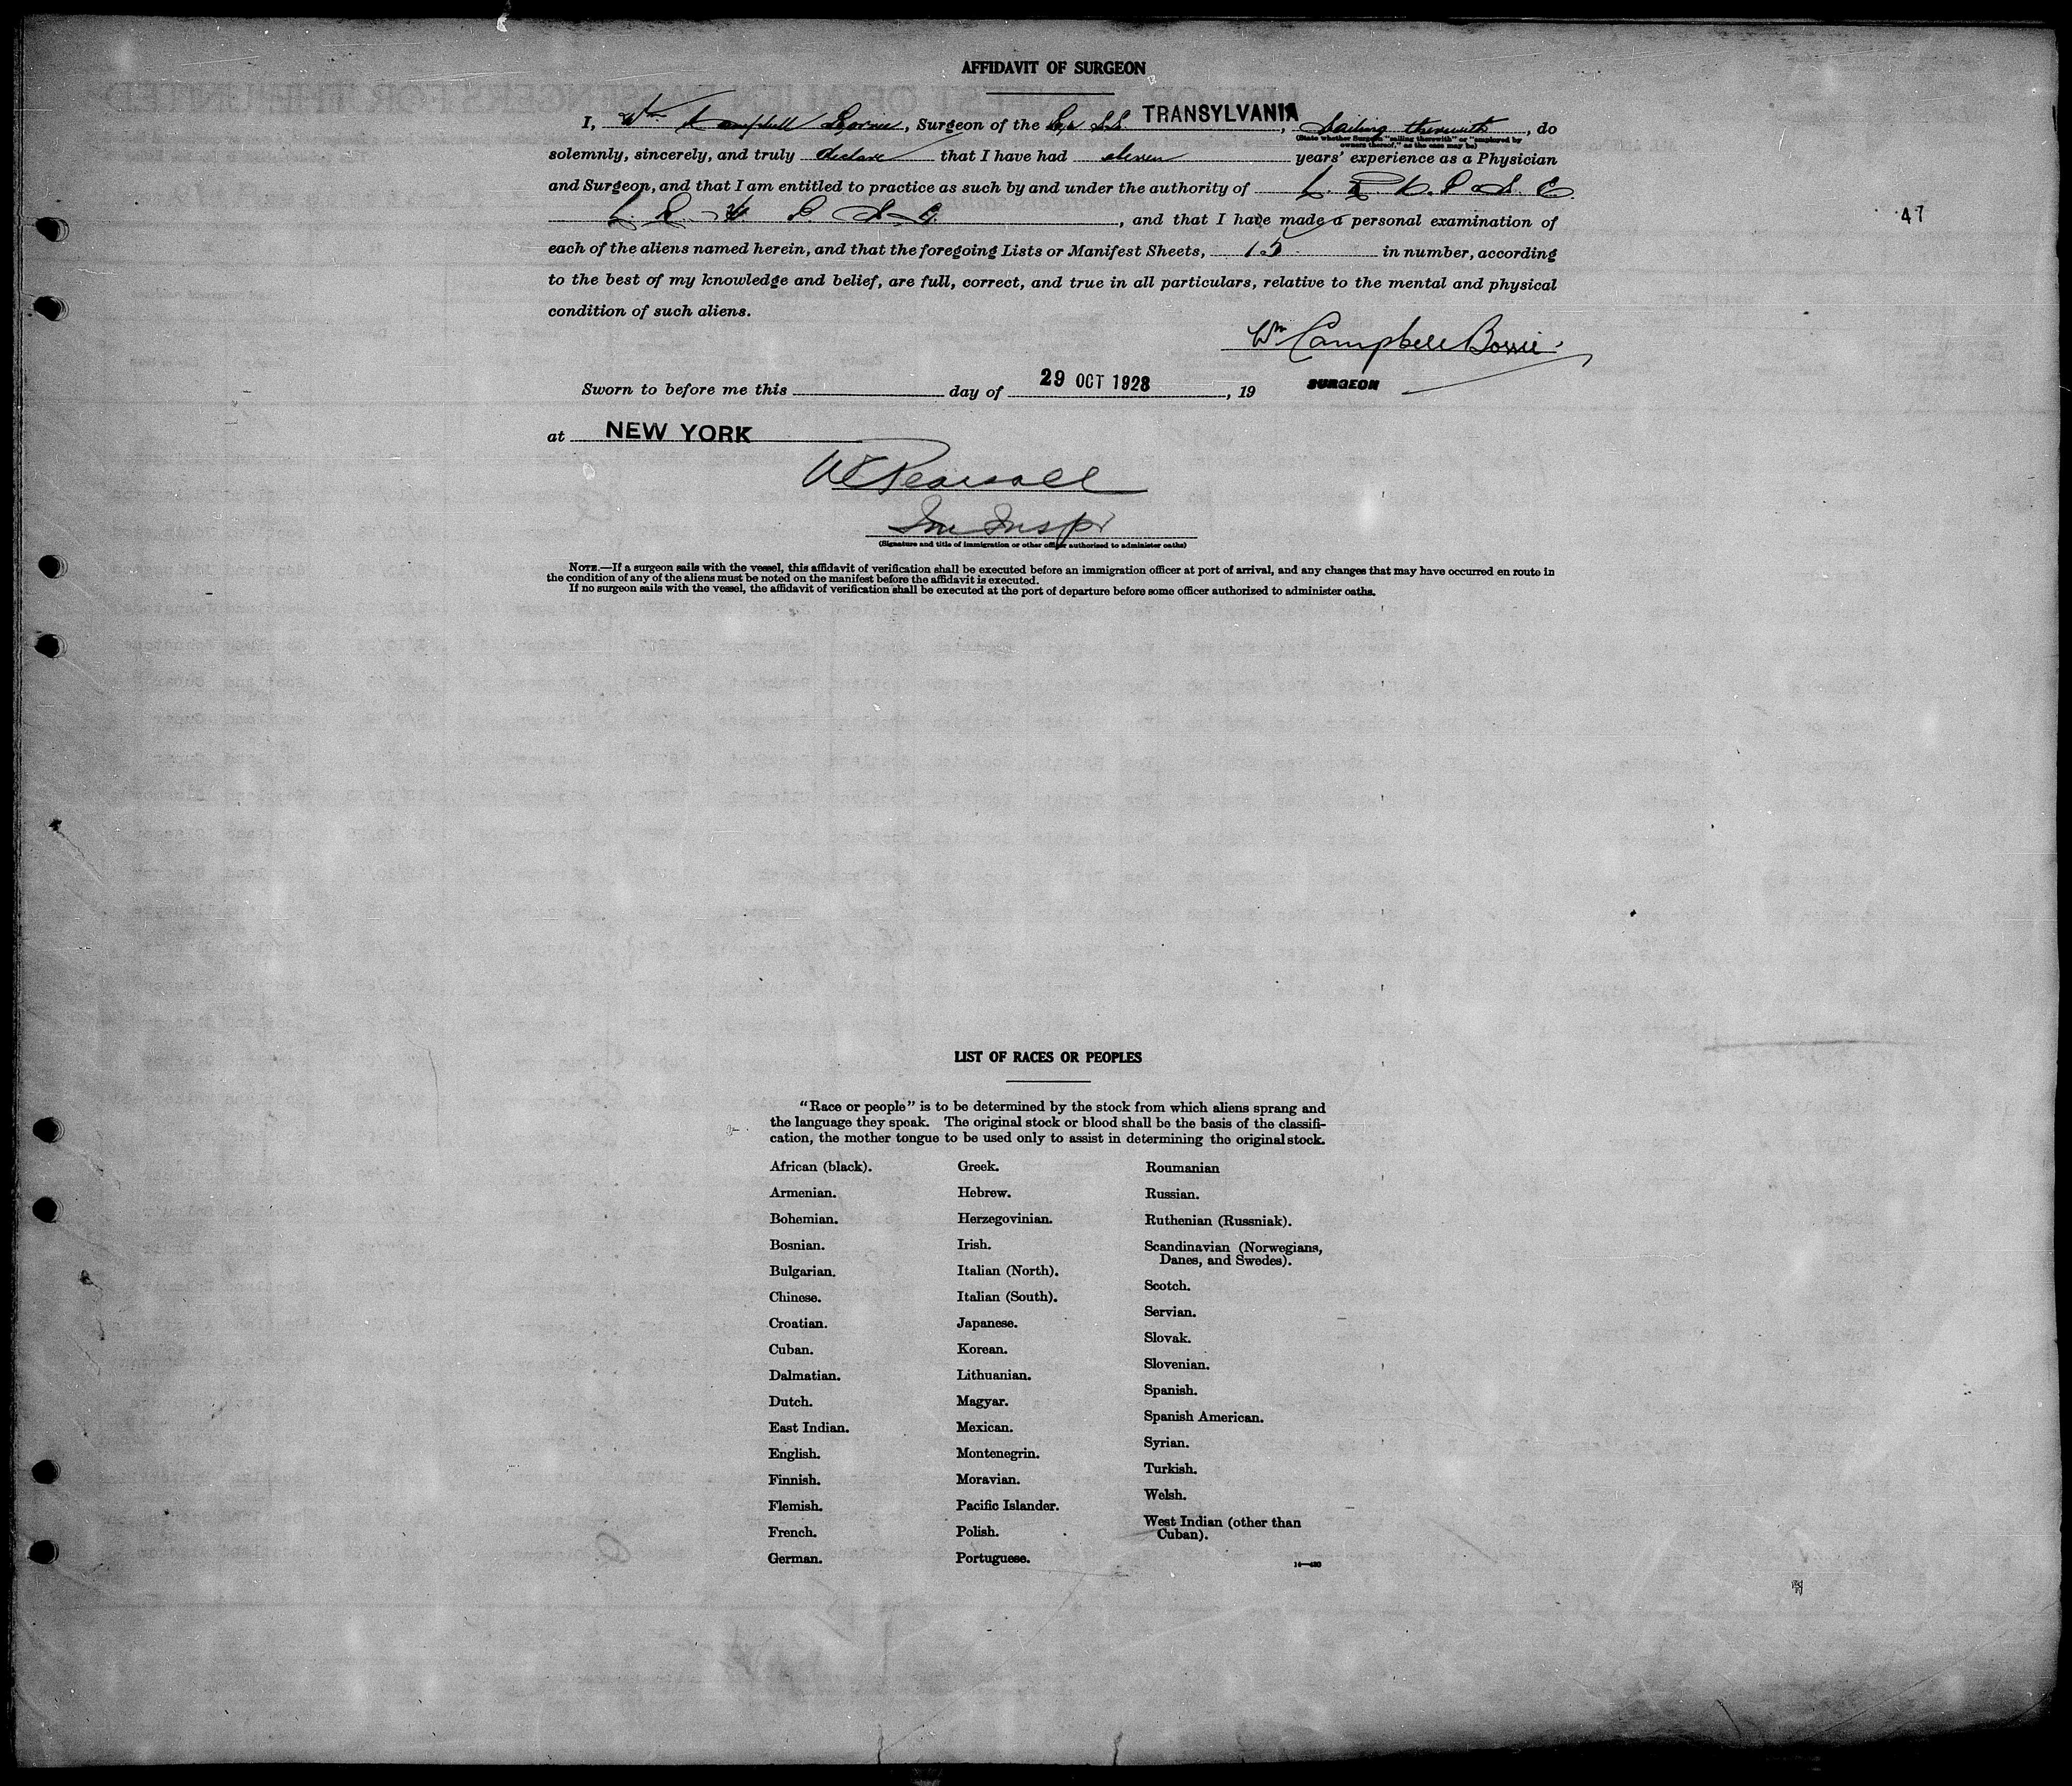 AFFIDAVIT OF SURGEON
I, Wm Campbell Borrie, Surgeon of the S.S. TRANSYLVANIA, Sailing therewith, do
(State whether Surgeon "sailing therewith" or "employed by
owners thereof," as the case may be)
solemnly, sincerely, and truly declare that I have had eleven years' experience as a Physician
and Surgeon, and that I am entitled to practice as such by and under the authority of
, and that I have made a personal examination of
47
each of the aliens named herein, and that the foregoing Lists or Manifest Sheets, 15 in number, according
to the best of my knowledge and belief, are full, correct, and true in all particulars, relative to the mental and physical
condition of such aliens.
Wm Campbell Borrie
SURGEON
Sworn to before me this day of 29 OCT 1928, 19
at NEW YORK
W Pearsall
Im Inspr
(Signature and title of immigration or other officer authorized to administer oaths)
NOTE.—If a surgeon sails with the vessel, this affidavit of verification shall be executed before an immigration officer at port of arrival, and any changes that may have occurred en route in
the condition of any of the aliens must be noted on the manifest before the affidavit is executed.
If no surgeon sails with the vessel, the affidavit of verification shall be executed at the port of departure before some officer authorized to administer oaths.
LIST OF RACES OR PEOPLES
"Race or people" is to be determined by the stock from which aliens sprang and
the language they speak. The original stock or blood shall be the basis of the classifi-
cation, the mother tongue to be used only to assist in determining the original stock.
African (black).
Armenian.
Bohemian.
Bosnian.
Bulgarian.
Chinese.
Croatian.
Cuban.
Dalmatian.
Dutch.
East Indian.
English.
Finnish.
Flemish.
French.
German.
Greek.
Hebrew.
Herzegovinian.
Irish.
Italian (North).
Italian (South).
Japanese.
Korean.
Lithuanian.
Magyar.
Mexican.
Montenegrin.
Moravian.
Pacific Islander.
Polish.
Portuguese.
Roumanian
Russian.
Ruthenian (Russniak).
Scandinavian (Norwegians,
Danes, and Swedes).
Scotch.
Servian.
Slovak.
Slovenian.
Spanish.
Spanish American.
Syrian.
Turkish.
Welsh.
West Indian (other than
Cuban).